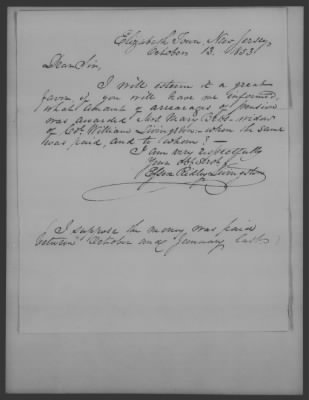 Elizabeth Town New Jersey,
October 13. 1853
Dear Sir,
I will esteem it a great
favor if you will have me informed,
what amount of arrearages of pension
was awarded Mrs Mary widow
of Col. William Livingston – when the same
was paid, and to whom? –
I am very respectfully
Your obt Servt
Ridley Livingston
I suppose the money was paid
between October and January last